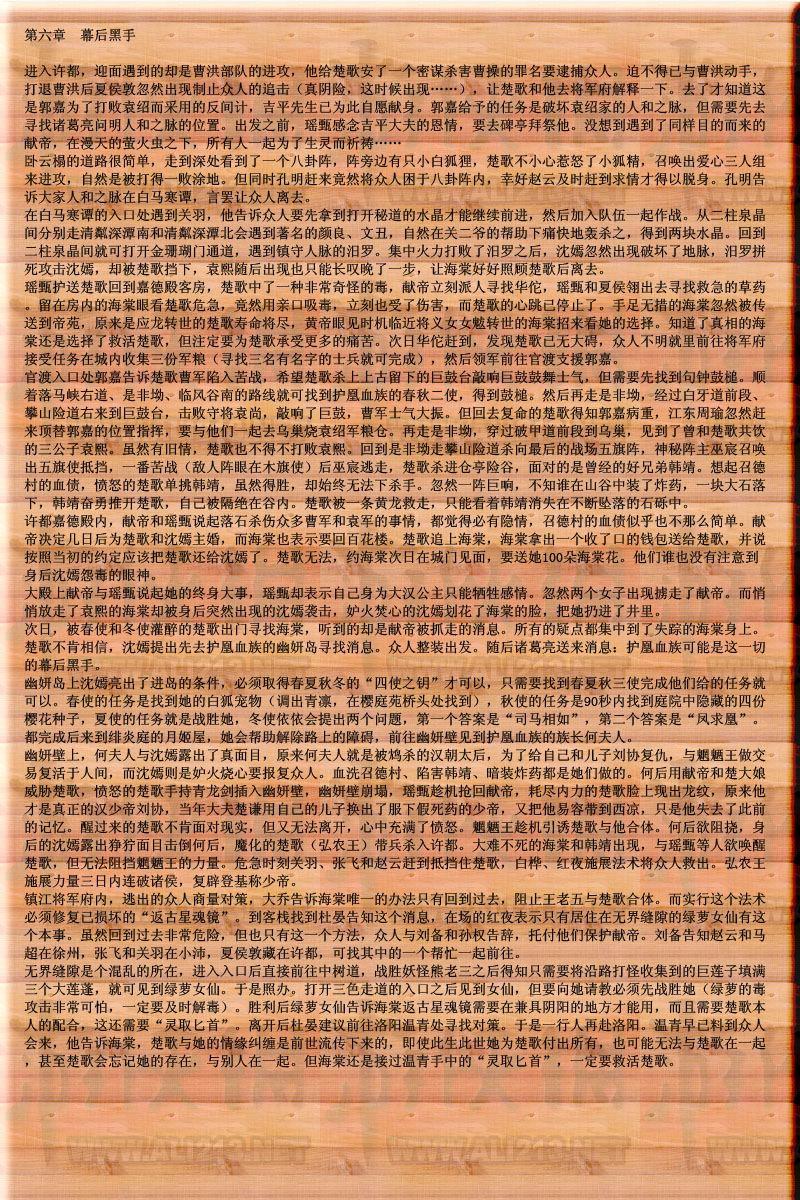 第六章　幕后黑手
进入许都，迎面遇到的却是曹洪部队的进攻，他给楚歌安了一个密谋杀害曹操的罪名要逮捕众人。迫不得已与曹洪动手，
打退曹洪后夏侯敦忽然出现制止众人的追击（真阴险．这时候出现……），让楚歌和他去将军府解释一下。去了才知道这
是郭嘉为了打败袁绍而采用的反间计，吉平先生已为此自愿献身。郭嘉给予的任务是破坏袁绍家的人和之脉，但需要先去
寻找诸葛亮问明人和之脉的位置。出发之前，瑶甄感念吉平大夫的恩情，要去碑亭拜祭他。没想到遇到了同样目的而来的
献帝，在漫天的萤火虫之下，所有人一起为了生灵而祈祷……
卧云榻的道路很简单，走到深处看到了一个八卦阵，阵旁边有只小白狐狸，楚歌不小心惹怒了小狐精，召唤出爱心三人组
来进攻，自然是被打得一败涂地。但同时孔明赶来竟然将众人困于八卦阵内，幸好赵云及时赶到求情才得以脱身。孔明告
诉大家人和之脉在白马寒谭，言罢让众人离去。
在白马寒谭的入口处遇到关羽，他告诉众人要先拿到打开秘道的水晶才能继续前进，然后加入队伍一起作战。从二柱泉晶
间分别走清粼深潭南和清粼深潭北会遇到著名的颜良、文丑，自然在关二爷的帮助下痛快地轰杀之，得到两块水晶。回到
二柱泉晶间就可打开金珊瑚门通道，遇到镇守人脉的汨罗。集中火力打败了汨罗之后，沈嫣忽然出现破坏了地脉，汨罗拼
死攻击沈嫣，却被楚歌挡下，袁熙随后出现也只能长叹晚了一步，让海棠好好照顾楚歌后离去。
瑶甄护送楚歌回到嘉德殿客房，楚歌中了一种非常奇怪的毒，献帝立刻派人寻找华佗，瑶甄和夏侯翎出去寻找救急的草药
。留在房内的海棠眼看楚歌危急，竟然用亲口吸毒，立刻也受了伤害，而楚歌的心跳已停止了。手足无措的海棠忽然被传
送到帝苑，原来是应龙转世的楚歌寿命将尽，黄帝眼见时机临近将义女女魃转世的海棠招来看她的选择。知道了真相的海
棠还是选择了救活楚歌，但注定要为楚歌承受更多的痛苦。次日华佗赶到，发现楚歌已无大碍，众人不明就里前往将军府
接受任务在城内收集三份军粮（寻找三名有名字的士兵就可完成），然后领军前往官渡支援郭嘉。
官渡入口处郭嘉告诉楚歌曹军陷入苦战，希望楚歌杀上上古留下的巨鼓台敲响巨鼓鼓舞士气，但需要先找到句钟鼓槌。顺
着落马峡右道、是非坳、临风谷南的路线就可找到护凰血族的春秋二使，得到鼓槌。然后再走是非坳，经过白牙道前段、
攀山险道右来到巨鼓台，击败守将袁尚，敲响了巨鼓，曹军士气大振。但回去复命的楚歌得知郭嘉病重，江东周瑜忽然赶
来顶替郭嘉的位置指挥，要与他们一起去乌巢烧袁绍军粮仓。再走是非坳，穿过破甲道前段到乌巢，见到了曾和楚歌共饮
的三公子袁熙。虽然有旧情，楚歌也不得不打败袁熙、回到是非坳走攀山险道杀向最后的战场五旗阵，神秘阵主巫宸召唤
出五旗使抵挡，一番苦战（敌人阵眼在木旗使）后巫宸逃走，楚歌杀进仓亭险谷，面对的是曾经的好兄弟韩靖。想起召德
村的血债，愤怒的楚歌单挑韩靖，虽然得胜，却始终无法下杀手。忽然一阵巨响，不知谁在山谷中装了炸药，一块大石落
下，韩靖奋勇推开楚歌，自己被隔绝在谷内。楚歌被一条黄龙救走，只能看着韩靖消失在不断坠落的石砾中。
许都嘉德殿内，献帝和瑶甄说起落石杀伤众多曹军和袁军的事情，都觉得必有隐情，召德村的血债似乎也不那么简单。献
帝决定几日后为楚歌和沈嫣主婚，而海棠也表示要回百花楼。楚歌追上海棠，海棠拿出一个收了口的钱包送给楚歌，并说
按照当初的约定应该把楚歌还给沈嫣了。楚歌无法，约海棠次日在城门见面，要送她100朵海棠花。他们谁也没有注意到
身后沈嫣怨毒的眼神。
大殿上献帝与瑶甄说起她的终身大事，瑶甄却表示自己身为大汉公主只能牺牲感情。忽然两个女子出现掳走了献帝。而悄
悄放走了袁熙的海棠却被身后突然出现的沈嫣袭击，妒火焚心的沈嫣划花了海棠的脸，把她扔进了井里。
次日，被春使和冬使灌醉的楚歌出门寻找海棠，听到的却是献帝被抓走的消息。所有的疑点都集中到了失踪的海棠身上。
楚歌不肯相信，沈嫣提出先去护凰血族的幽妍岛寻找消息。众人整装出发。随后诸葛亮送来消息：护凰血族可能是这一切
的幕后黑手。
幽妍岛上沈嫣亮出了进岛的条件，必须取得春夏秋冬的“四使之钥”才可以，只需要找到春夏秋三使完成他们给的任务就
可以。春使的任务是找到她的白狐宠物（调出青凛，在樱庭苑桥头处找到），秋使的任务是90秒内找到庭院中隐藏的四份
樱花种子，夏使的任务就是战胜她，冬使依依会提出两个问题，第一个答案是“司马相如”，第二个答案是“凤求凰”。
都完成后来到绯炎庭的月姬屋，她会帮助解除路上的障碍，前往幽妍壁见到护凰血族的族长何夫人。
幽妍壁上，何夫人与沈嫣露出了真面目，原来何夫人就是被鸩杀的汉朝太后，为了给自己和儿子刘协复仇，与魍魉王做交
易复活于人间，而沈嫣则是妒火烧心要报复众人。血洗召德村、陷害韩靖、暗装炸药都是她们做的。何后用献帝和楚大娘
威胁楚歌，愤怒的楚歌手持青龙剑插入幽妍壁，幽妍壁崩塌，瑶甄趁机抢回献帝，耗尽内力的楚歌脸上现出龙纹，原来他
才是真正的汉少帝刘协，当年大夫楚谦用自己的儿子换出了服下假死药的少帝，又把他易容带到西凉，只是他失去了此前
的记忆。醒过来的楚歌不肯面对现实，但又无法离开，心中充满了愤怒。魍魉王趁机引诱楚歌与他合体。何后欲阻挠，身
后的沈嫣露出狰狞面目击倒何后，魔化的楚歌（弘农王）带兵杀入许都。大难不死的海棠和韩靖出现，与瑶甄等人欲唤醒
楚歌，但无法阻挡魍魉王的力量。危急时刻关羽、张飞和赵云赶到抵挡住楚歌，白桦、红夜施展法术将众人救出。弘农王
施展力量三日内连破诸侯，复辟登基称少帝。
镇江将军府内，逃出的众人商量对策，大乔告诉海棠唯一的办法只有回到过去，阻止王老五与楚歌合体。而实行这个法术
必须修复已损坏的“返古星魂镜”。到客栈找到杜晏告知这个消息，在场的红夜表示只有居住在无界缝隙的绿萝女仙有这
个本事。虽然回到过去非常危险，但也只有这一个方法，众人与刘备和孙权告辞，托付他们保护献帝。刘备告知赵云和马
超在徐州，张飞和关羽在小沛，夏侯敦藏在许都，可找其中的一个帮忙一起前往。
无界缝隙是个混乱的所在，进入入口后直接前往中树道，战胜妖怪熊老三之后得知只需要将沿路打怪收集到的巨莲子填满
三个大莲蓬，就可见到绿萝女仙。于是照办。打开三色走道的入口之后见到女仙，但要向她请教必须先战胜她（绿萝的毒
攻击非常可怕，一定要及时解毒）。胜利后绿萝女仙告诉海棠返古星魂镜需要在兼具阴阳的地方才能用，而且需要楚歌本
人的配合，这还需要“灵取匕首”。离开后杜晏建议前往洛阳温青处寻找对策。于是一行人再赴洛阳。温青早已料到众人
会来，他告诉海棠，楚歌与她的情缘纠缠是前世流传下来的，即使此生此世她为楚歌付出所有，也可能无法与楚歌在一起
，甚至楚歌会忘记她的存在，与别人在一起。但海棠还是接过温青手中的“灵取匕首”，一定要救活楚歌。
WWW.ALI213.NET